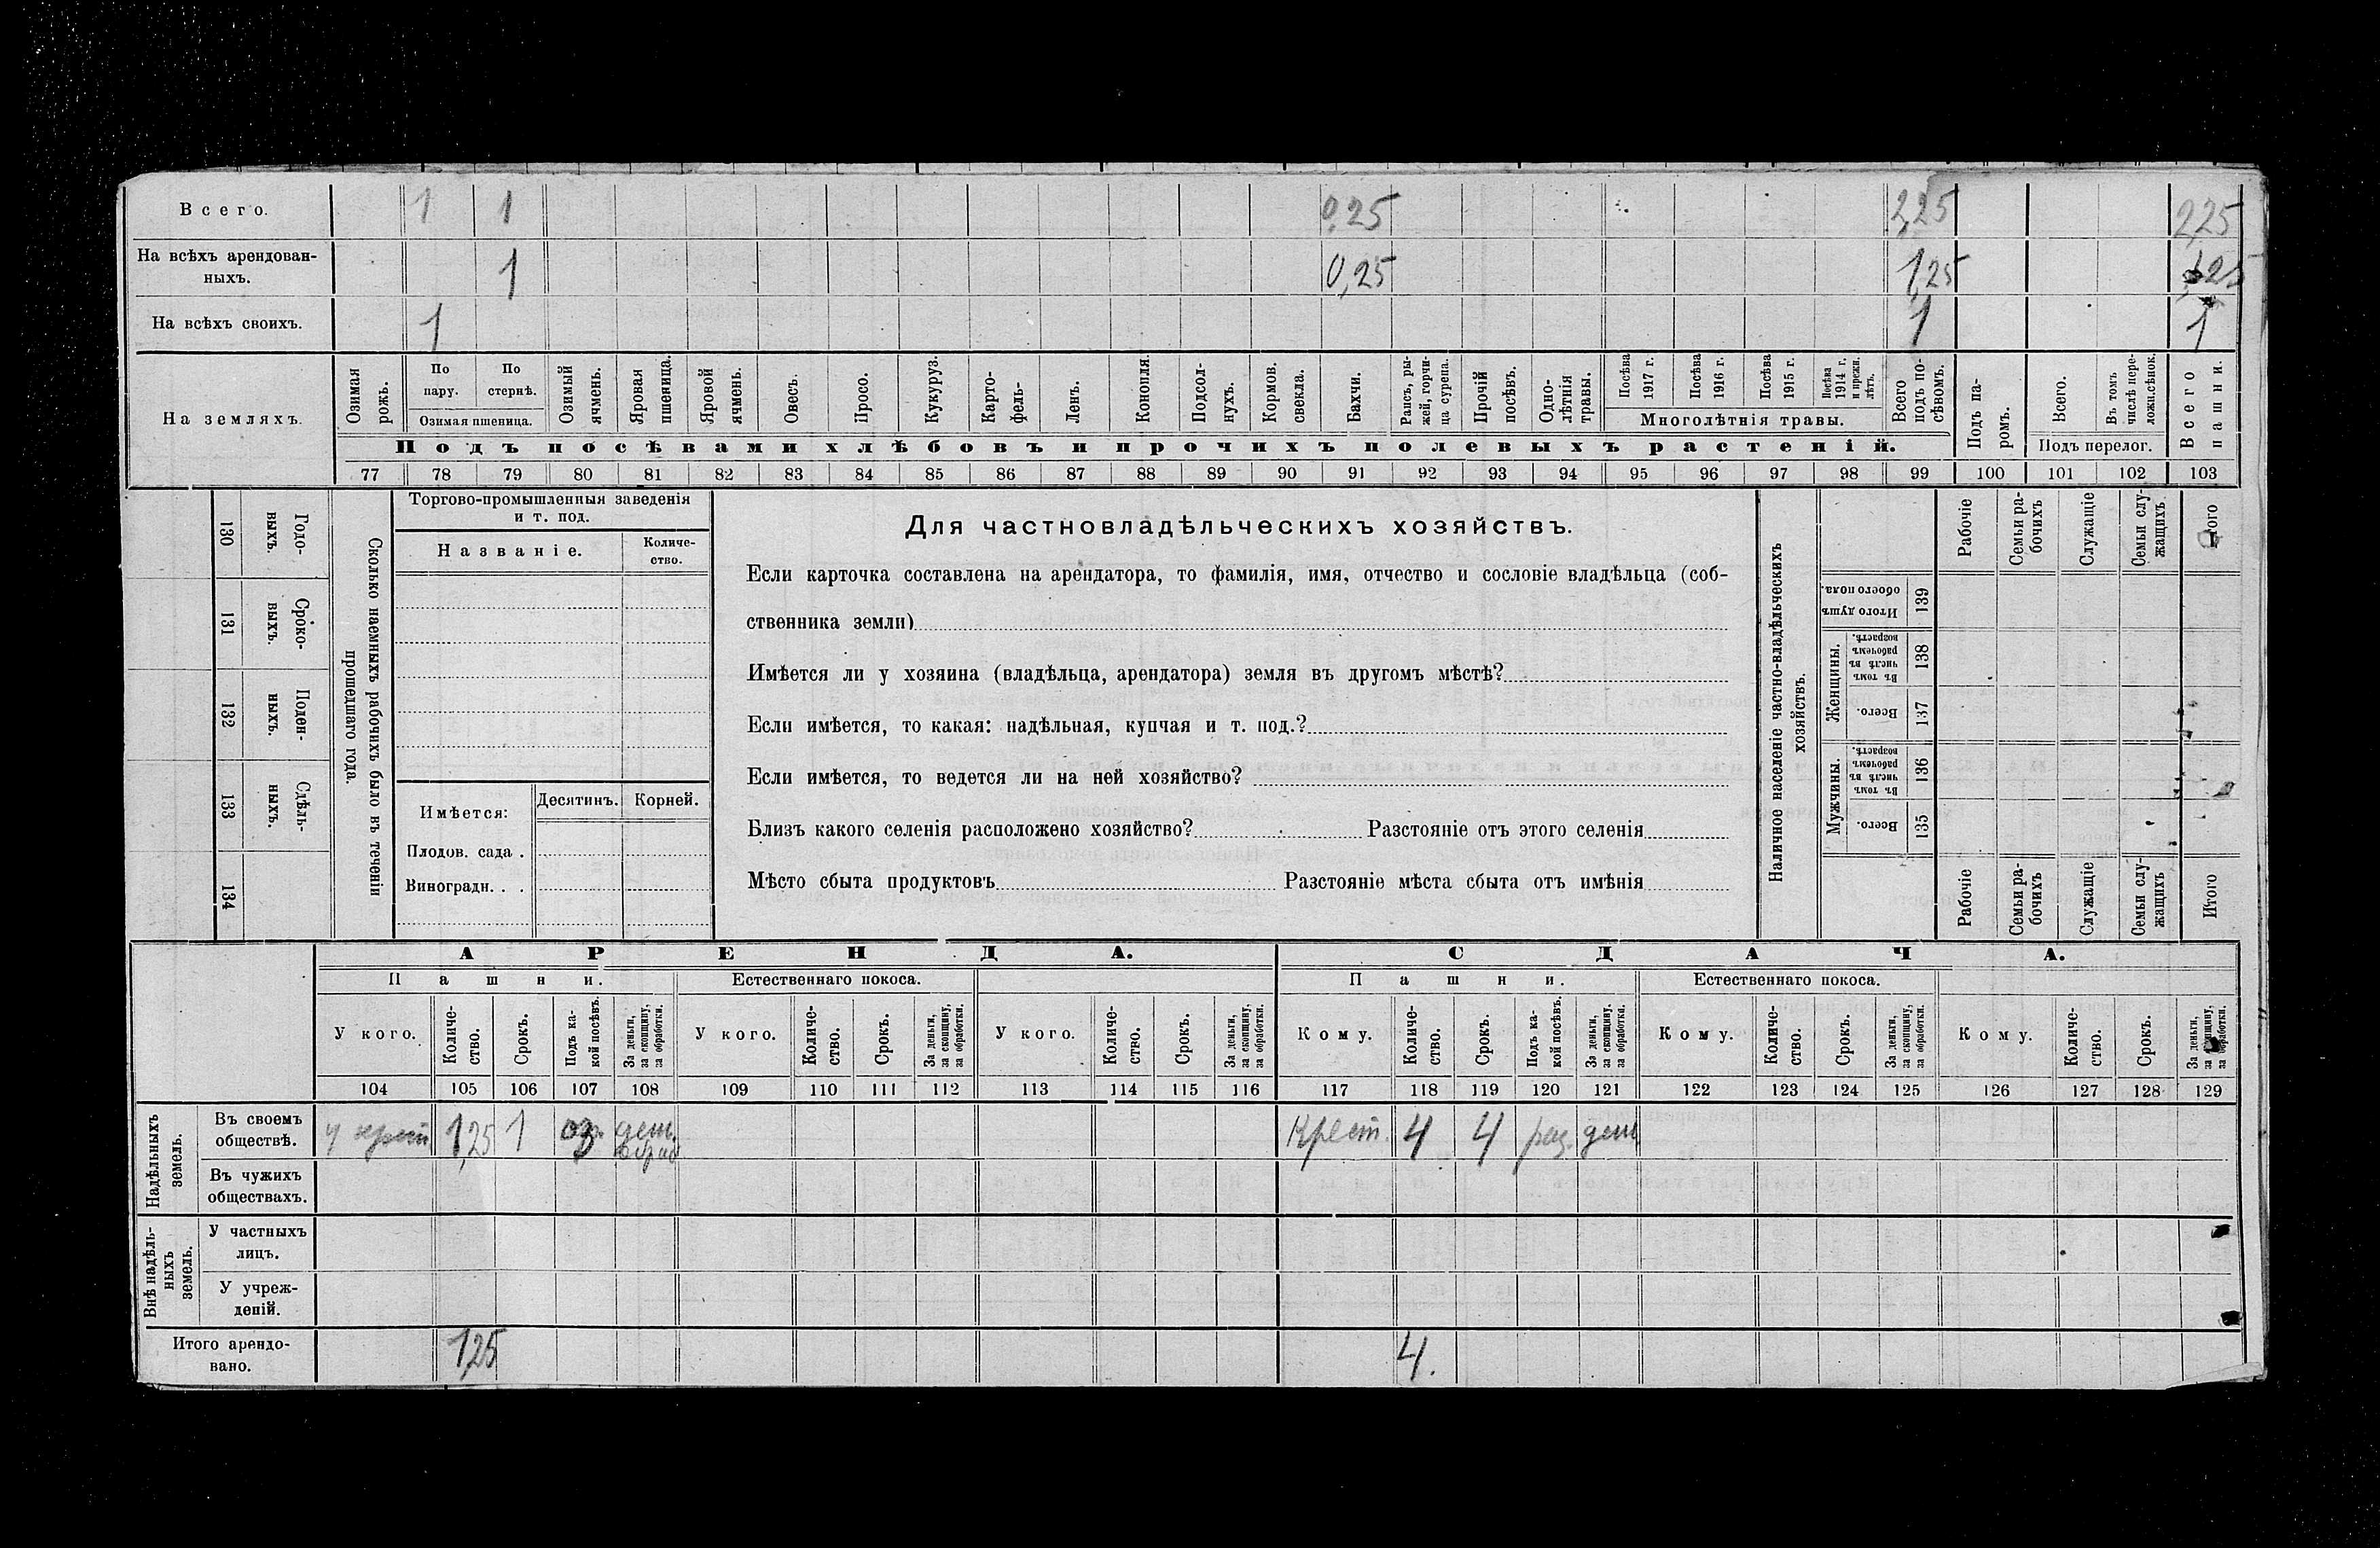 Всего. 1 1 0,25 2,25 2,25
На всѣхъ арендован-
ныхъ. 1 0,25 1,25 1,25
На всѣхъ своихъ. 1 1 1
На земляхъ.
Озимая рожь.
По пару.
По стернѣ.
Озимая пшеница.
Озимый ячмень.
Яровая пшеница.
Яровой ячмень.
Овесъ.
Просо.
Кукуруз.
Карто-
фель-
Ленъ.
Конопля.
Подсол-
нухъ.
Кормов. свекла.
Бахчи.
Рапсъ, ры-
жей, горчи-
ца сурепа.
Прочій посѣвъ.
Одно-
лѣтнія травы.
Посѣва 1917 г.
Посѣва 1916 г.
Посѣва 1915 г.
Посѣва 1914 г. и прежн. лѣтъ.
Многолѣтнія травы.
Всего подъ по-
сѣвомъ.
Подъ па-
ромъ.
Всего.
Въ томъ числѣ пере-
ложн.сѣнок.
Подъ перелог.
Всего пашни.
Подъ посѣвами хлѣбовъ и прочихъ полевыхъ растеній.
77 78 79 80 81 82 83 84 85 86 87 88 89 90 91 92 93 94 95 96 97 98 99 100 101 102 103
130 Годо-
выхъ.
131 Сроко-
выхъ.
132 Поден-
ныхъ.
133 Сдѣль-
ныхъ.
134
Сколько наемныхъ рабочихъ было въ теченіи
прошедшаго года.
Торгово-промышленныя заведенія
и т. под.
Названіе.
Количе-
ство.
Имѣется:
Десятинъ. Корней.
Плодов. сада .
Виноградн. . .
Для частновладѣльческихъ хозяйствъ.
Если карточка составлена на арендатора, то фамилія, имя, отчество и сословіе владѣльца (соб-
ственника земли)
Имѣется ли у хозяина (владѣльца, арендатора) земля въ другомъ мѣстѣ?
Если имѣется, то какая: надѣльная, купчая и т. под.?
Если имѣется, то ведется ли на ней хозяйство?
Близъ какого селенія расположено хозяйство? Разстояніе отъ этого селенія
Мѣсто сбыта продуктовъ Разстояніе мѣста сбыта отъ имѣнія
Наличное населеніе частно-владѣльческихъ
хозяйствъ.
Рабочіе
Семьи ра-
бочихъ
Служащіе
Семьи слу-
жащихъ
Итого
Итого душъ обоего пола. 139
Женщины.
Въ томъ числѣ въ рабочемъ возрастѣ. 138
Всего. 137
Мужчины.
Въ томъ числѣ въ рабочемъ возрастѣ. 136
Всего. 135
Рабочіе
Семьи ра-
бочихъ
Служащіе
Семьи слу-
жащихъ
Итого
АРЕНДА. СДАЧА.
Пашни. Естественнаго покоса. Пашни. Естественнаго покоса.
У кого.
Количе-
ство.
Срокъ.
Подъ ка-
кой посѣвъ.
За деньги, за скопщину, за обработки.
У кого.
Количе-
ство.
Срокъ.
За деньги, за скопщину, за обработки.
У кого.
Количе-
ство.
Срокъ.
За деньги, за скопщину, за обработки.
Кому.
Количе-
ство.
Срокъ.
Подъ ка-
кой посѣвъ.
За деньги, за скопщину, за обработки.
Кому.
Количе-
ство.
Срокъ.
За деньги, за скопщину, за обработки.
Кому.
Количе-
ство.
Срокъ.
За деньги, за скопщину, за обработки.
104 105 106 107 108 109 110 111 112 113 114 115 116 117 118 119 120 121 122 123 124 125 126 127 128 129
Надѣльныхъ земель.
Въ своемъ
обществѣ. У крест 1,25 1 оз. Крест. 4 4 раз. ден
Въ чужихъ
обществахъ.
Внѣ надѣль-
ныхъ земель.
У частныхъ
лицъ.
У учреж-
деній.
Итого арендо-
вано. 1,25 4.